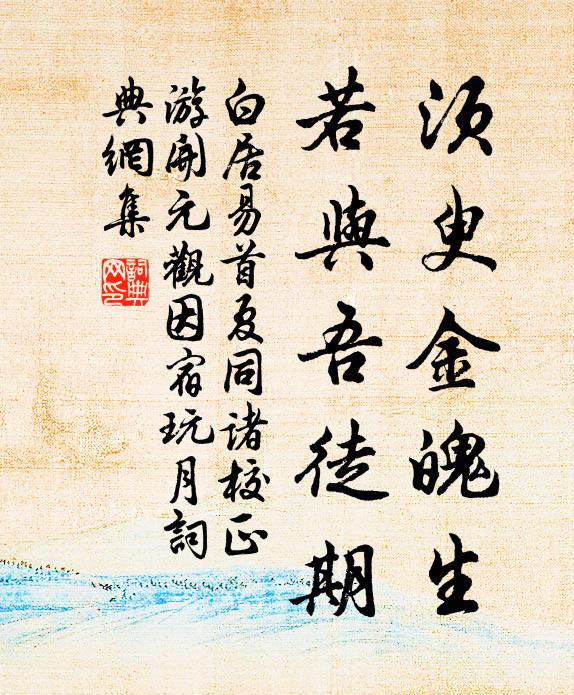 須臾金魄生
若與吾徒期
白居易首夏同諸校正
游開元觀因宿玩月詞
典網集
詞典
网印